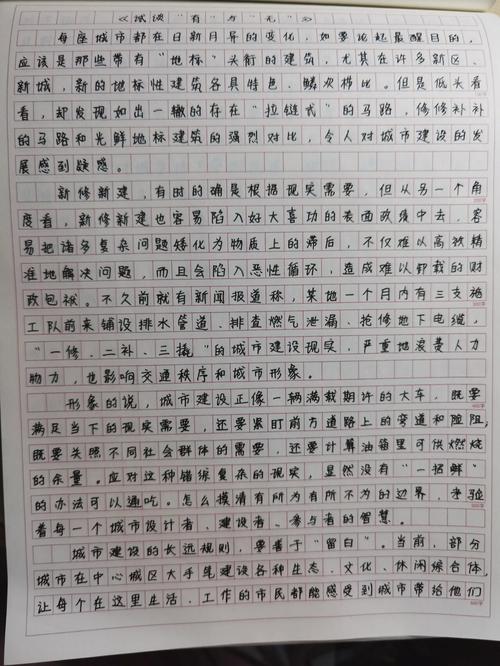 《试谈“有”与“无”》
每座城市都在日新月异的变化，如要论起最醒目的，
应该是那些带有“地标”头衔的建筑，尤其在许多新区、
新城，新的地标性建筑各具特色、鳞次栉比。但是低头看
看，却发现如出一辙的存在“拉链式”的马路，修修补补
的马路和光鲜地标建筑的强烈对比，令人对城市建设的发
展感到疑惑。
新修新建，有时的确是根据现实需要，但从另一个角
度看，新修新建也容易陷入好大喜功的表面政绩中去，容
易把诸多复杂问题矮化为物质上的滞后，不仅难以高效精
准地解决问题，而且会陷入恶性循环，造成难以卸载的财
政包袱。不久前就有新闻报道称，某地一个月内有三支施
工队前来铺设排水管道、排查燃气泄漏、抢修地下电缆，
“一修、二补、三撬”的城市建设现实，严重地浪费人力
物力，也影响交通秩序和城市形象。
形象的说，城市建设正像一辆满载期许的大车，既要
满足当下的现实需要，还要紧盯前方道路上的弯道和险阻，
既要关照不同社会群体的需要，还要计算油箱里可供燃烧
的余量。应对这种错综复杂的现实，显然没有“一招鲜”
的办法可以通吃。怎么摸清有所为有所不为的边界，考验
着每一个城市设计者、建设者、参与者的智慧。
城市建设的长远规则，要着于“留白”。当前，部分
城市在中心城区大手笔建设各种生态、文化、休闲综合体，
让每个在这里生活、工作的市民都能感受到城市带给他们